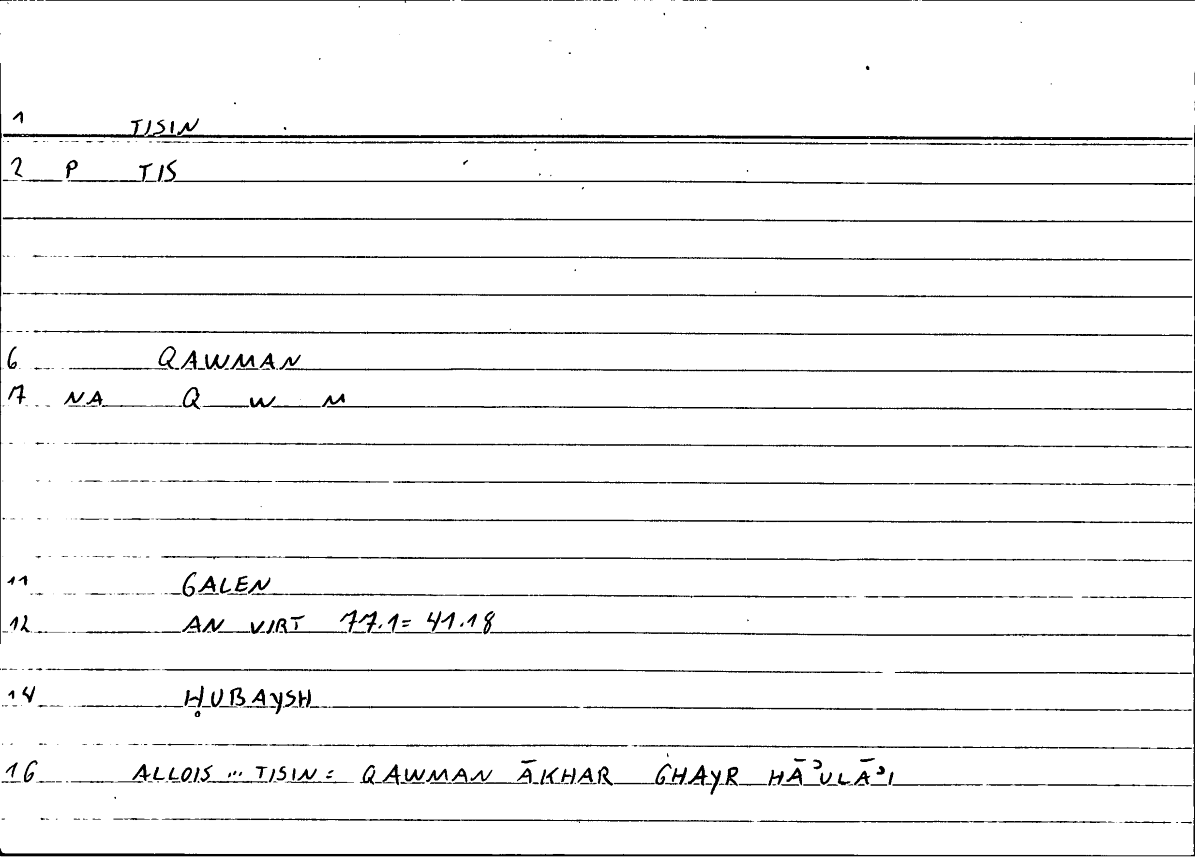 1 TISIN
2 P TIS
6 QAWMAN
7 NA Q W M
11 GALEN
12 AN VIRT 77.1= 41.18
14 ḤUBAYSH
16 ALLOIS ... TISIN = QAWMAN ĀKHAR GHAYR HĀʾULĀʾI